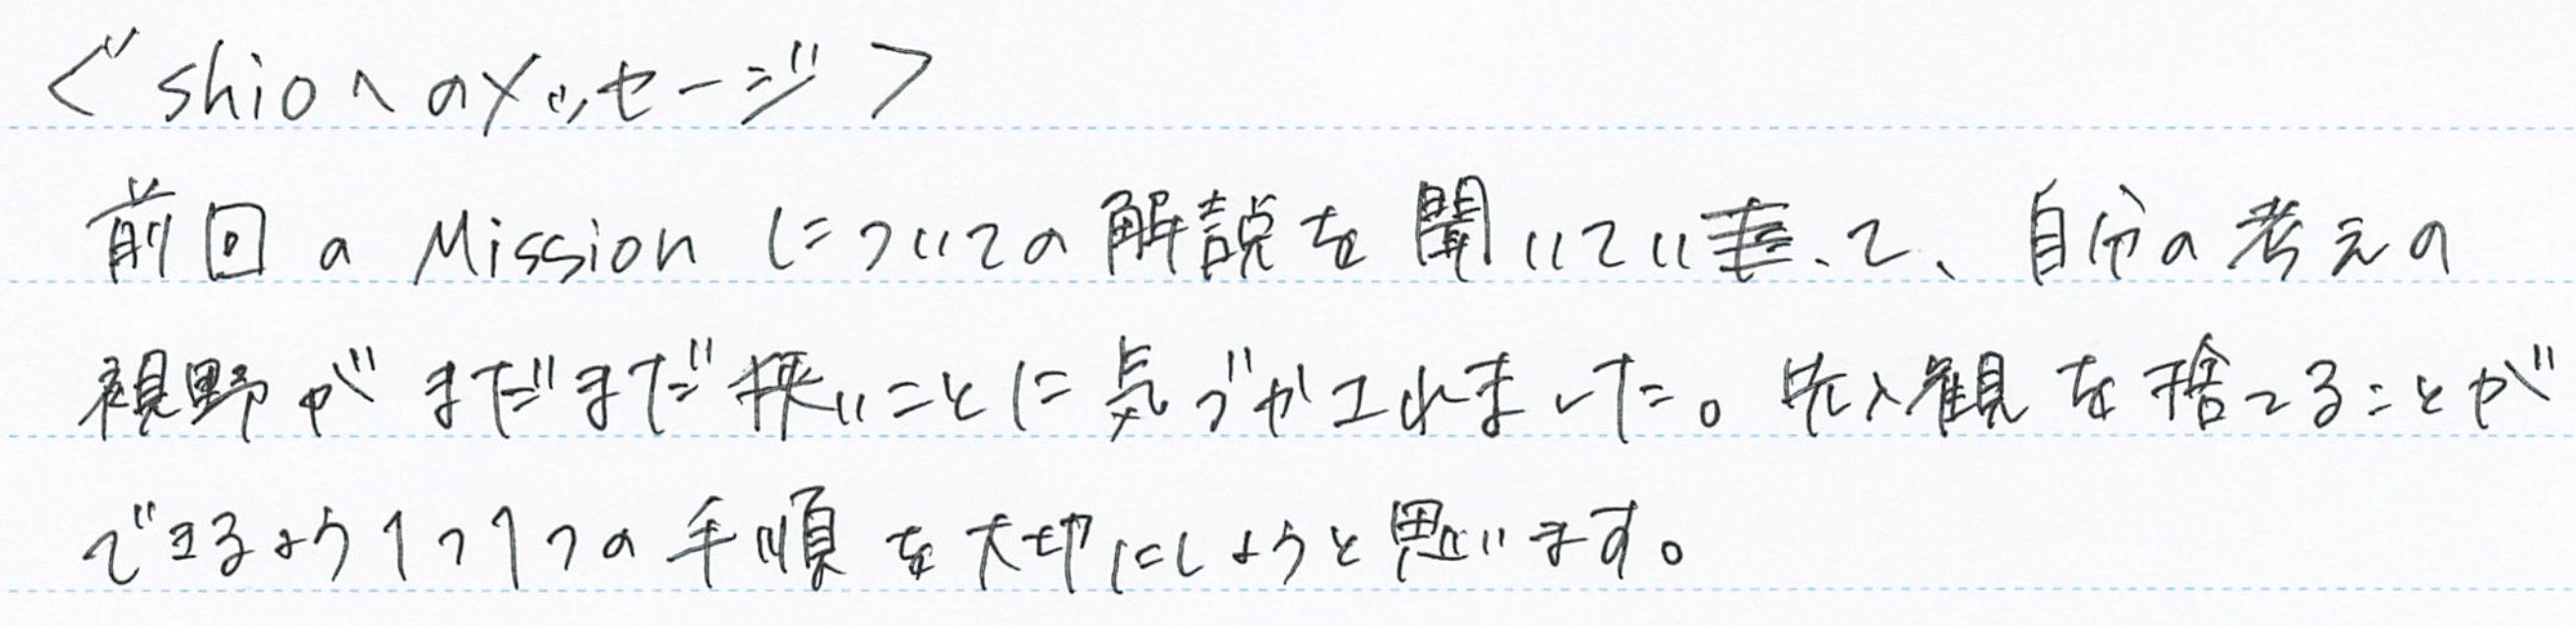 <shioへのメッセージ>
前回のMissionについての解説を聞いていて、自分の考えの
視野がまだまだ狭いことに気づかされました。先入観を捨てることが
できるよう1つ1つの手順を大切にしようと思います。